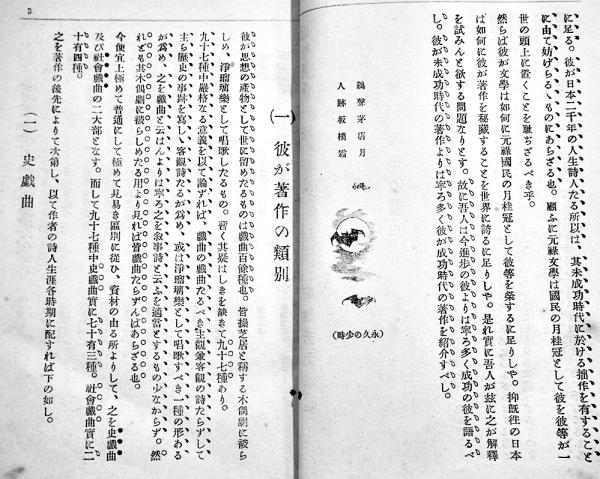 に足る。彼が日本二千年の人生詩人たる所以は、其未成功時代に於ける拙作を有すること
に由て妨げらるゝものにあらざる也。顧ふに元祿文學は國民の月桂冠として彼を彼等が一
世の頭上に置くことを耻ぢざるべき乎。
然らば彼が文學は如何に元祿國民の月桂冠として彼等を榮するに足りしや。抑既往の日本
は如何に彼が著作を秘藏することを世界に誇るに足りしや。是れ實に吾人が玆に之が解釋
を試みんと欲する問題なりとす。故に吾人は今進步の彼よりは寧ろ多く成功の彼を語るべ
し。彼が未成功時代の著作よりは寧ろ多く彼が成功時代の著作を紹介すべし。
鷄聲茅店月
人跡板橋霜
(永久の少時)
3
(一) 彼が著作の類別
彼が思想の產物として世に留めたるものは戯曲百餘種也。皆操芝居と稱する木偶劇に被ら
しめ、淨瑠璃樂として唱歌したるもの。若く其疑はしきを缺きて九十七種あり。
九十七種中嚴格なる意義を以て論ずれば、戯曲の戯曲たるべき主觀兼客觀の詩たらずして
主ら歷史の事跡を寫し、客觀詩たるが爲め、或は淨瑠璃樂として唱歌すべき一種の形ある
が爲め、之を戯曲と云はんよりは寧ろ之を敘事詩と云ふを適當とするもの少なからず。然
れども其木偶劇に被らしめたる用より見れば皆戯曲たらずんばあらざる也。
今便宜上極めて普通にして極めて見易き區別に從ひ、資材の由る所よりして、之を史戯曲
及び社會戯曲の二大部となす。而して九十七種中史戯曲實に七十有三種。社會戯曲實に二
十有四種。
之を著作の後先によりて次第し、以て作者の詩人生涯各時期に配すれば下の如し。
(一) 史戯曲